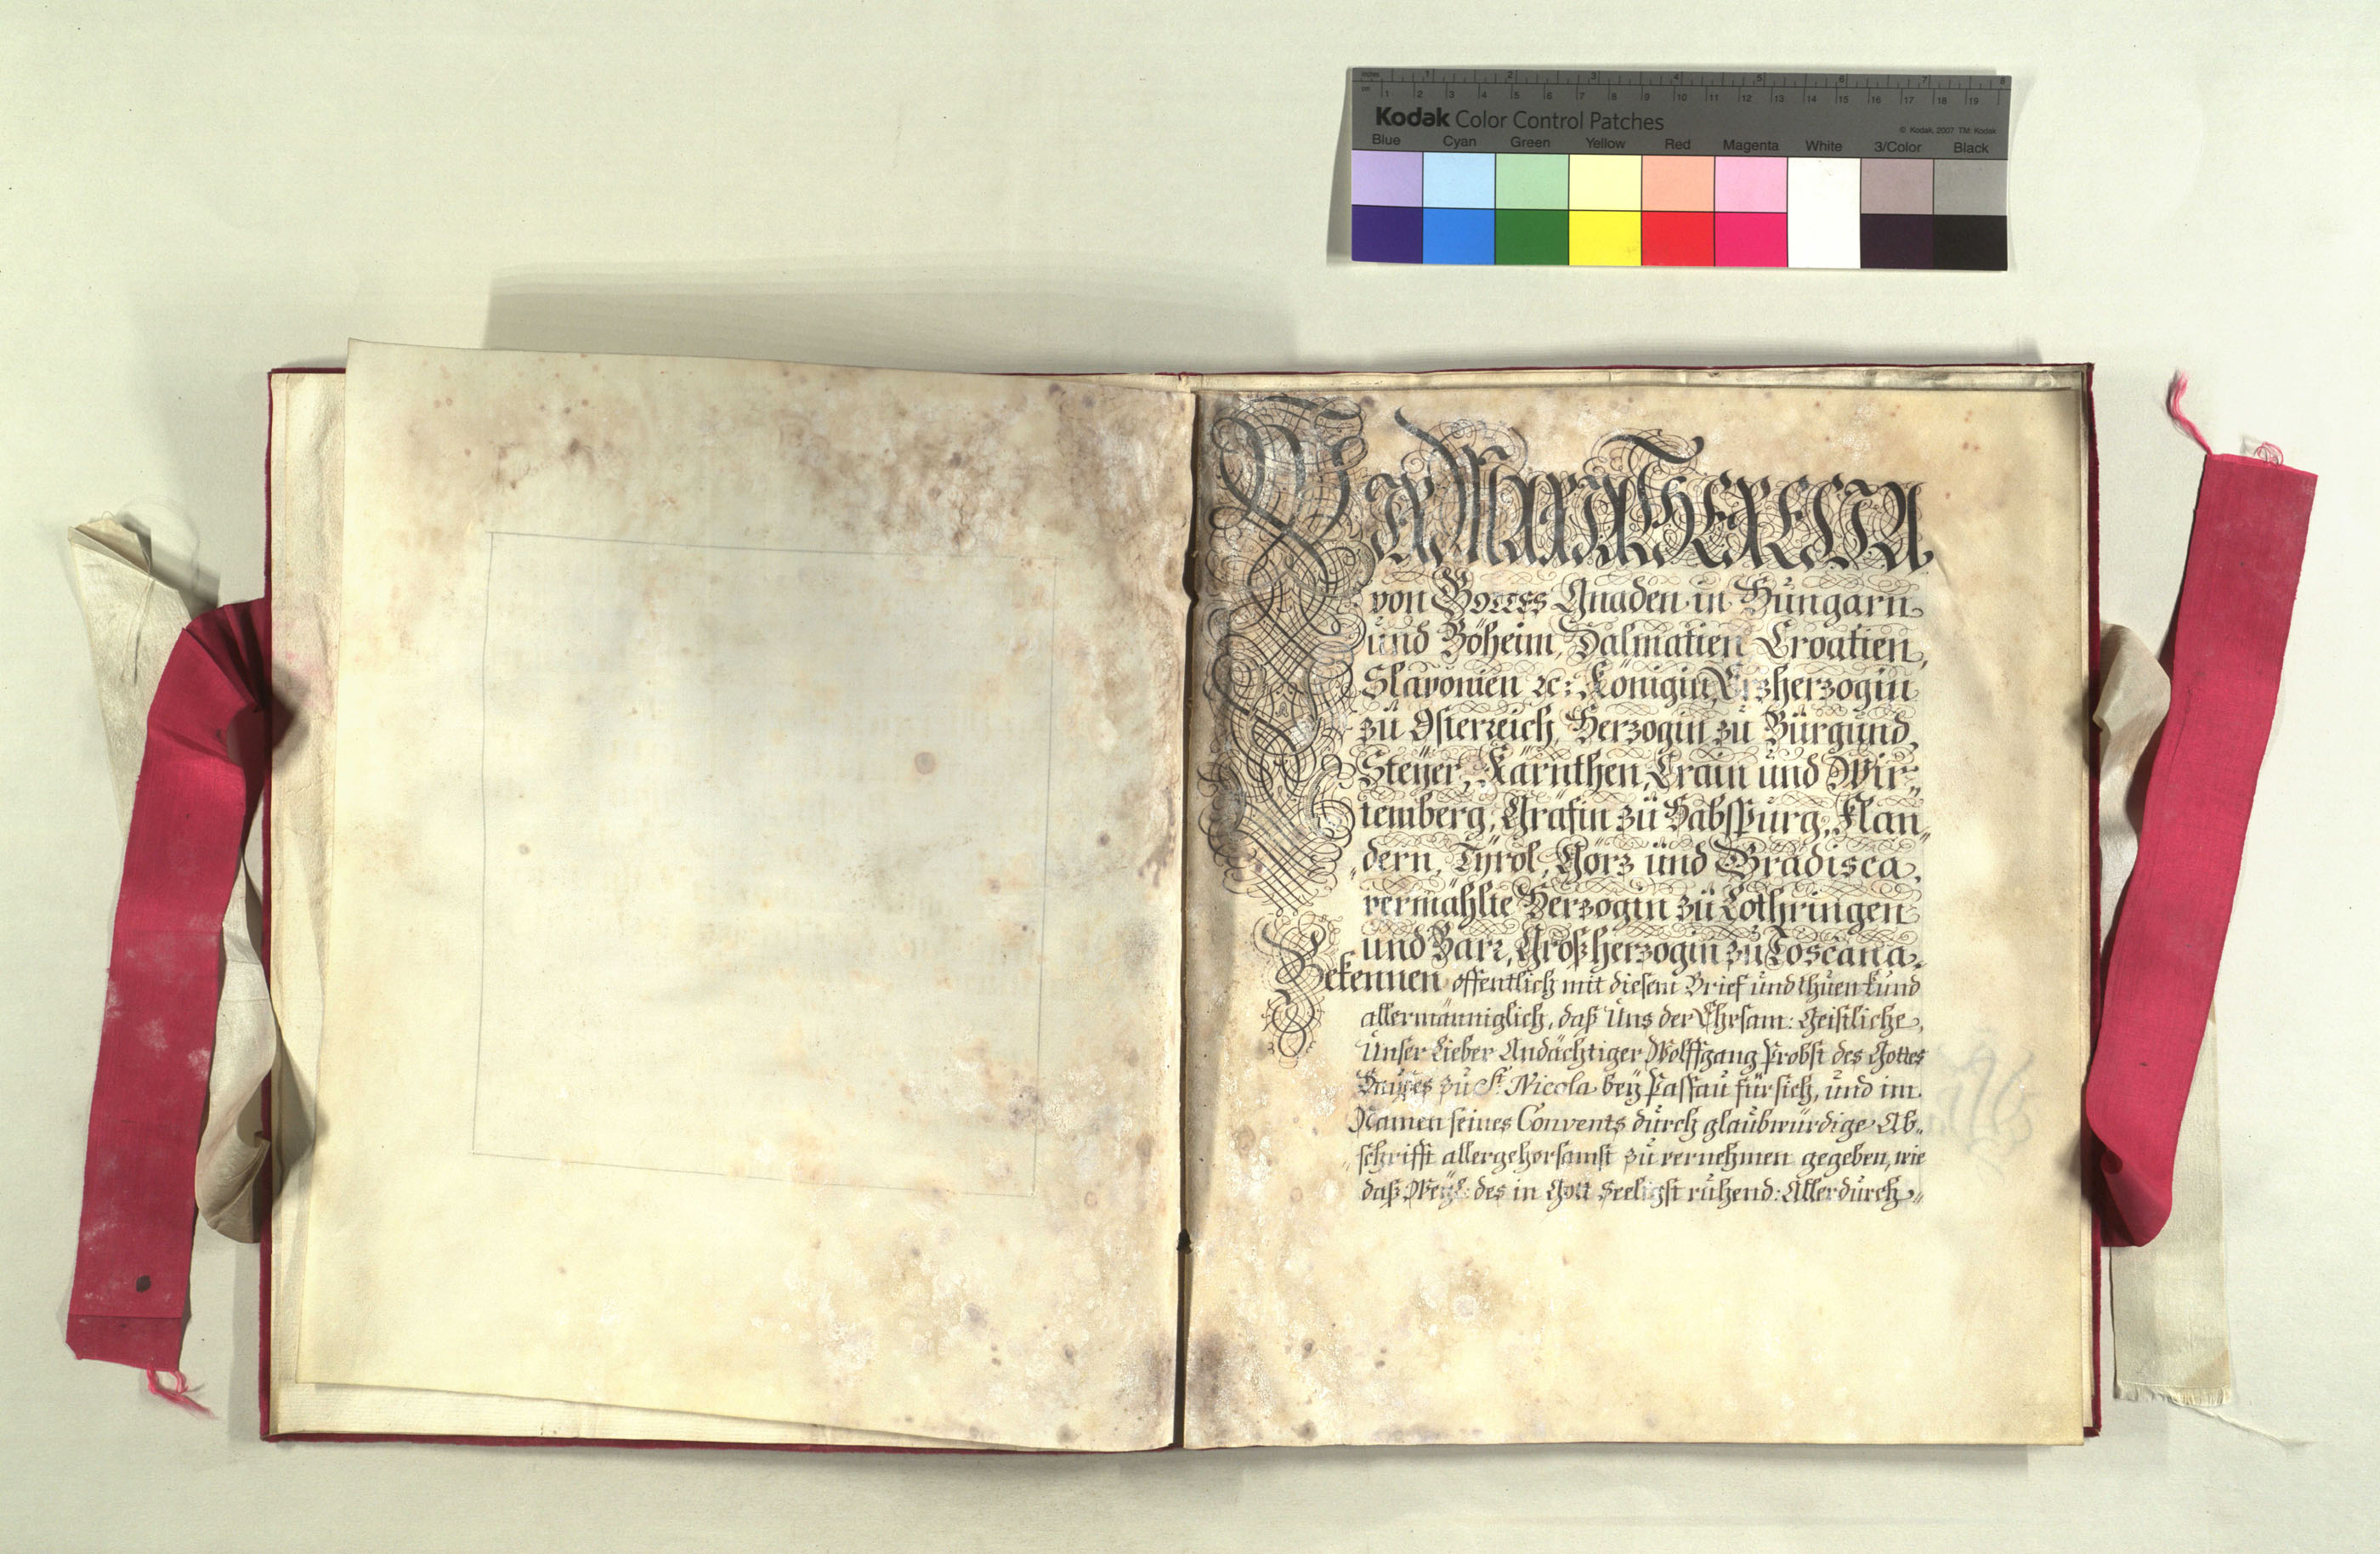 inches 1 2 3 4 5 6 7 8
cm 1 2 3 4 5 6 7 8 9 10 11 12 13 14 15 16 17 18 19
Kodak Color Control Patches
© Kodak, 2007 TM: Kodak
Blue Cyan Green Yellow Red Magenta White 3/Color Black
WIR MARIA THERESIA
von GOTTES Gnaden in Hungarn
und Böheim, Dalmatien Croatien,
Slavonien ꝛc: Königin, Erzherzogin
zu Österreich, Herzogin zu Burgund,
Steyer, Kärnthen, Crain und Wir„
temberg, Gräfin zu Habspurg, Flan„
„dern, Tÿrol, Görz und Gradisca,
vermählte Herzogin zu Lothringen
und Barr, Großherzogin zu Toscana.
Bekennen offentlich mit diesem Brief und thuen kund
allermänniglich, daß Uns der Ehrsam: Geistliche,
Unser Lieber Andächtiger Wolffgang Probst des Gottes
Hauses zu St. Nicola bey Passau für sich, und im
Namen seines Convents durch glaubwürdige Ab„
„schrifft allergehorsamst zu vernehmen gegeben, wie
daß Weyl: des in Gott Seeligst ruhend: Allerdurch„